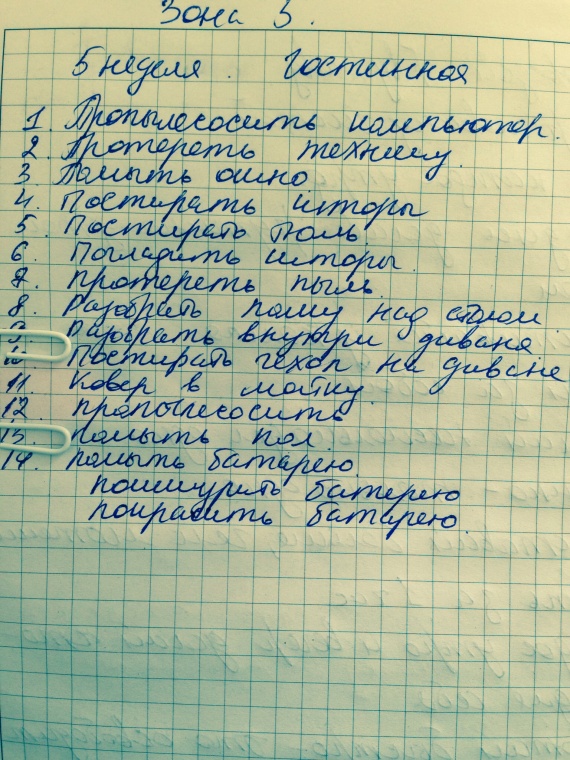 Зона 3.
5 неделя. Гостинная
1. Пропылесосить компьютор.
2. Протереть технику.
3 Помыть окно
4. Постирать шторы
5. Постирать тюль
6 Погладить шторы.
7. протереть пыль.
8. Разобрать полку над столом
9. Разобрать внутри дивана
Постирать чехол на диване
11. Ковер в мойку.
12. пропылесосить
13. помыть пол
14. помыть батарею
пошкурить батерею
покрасить батарею.